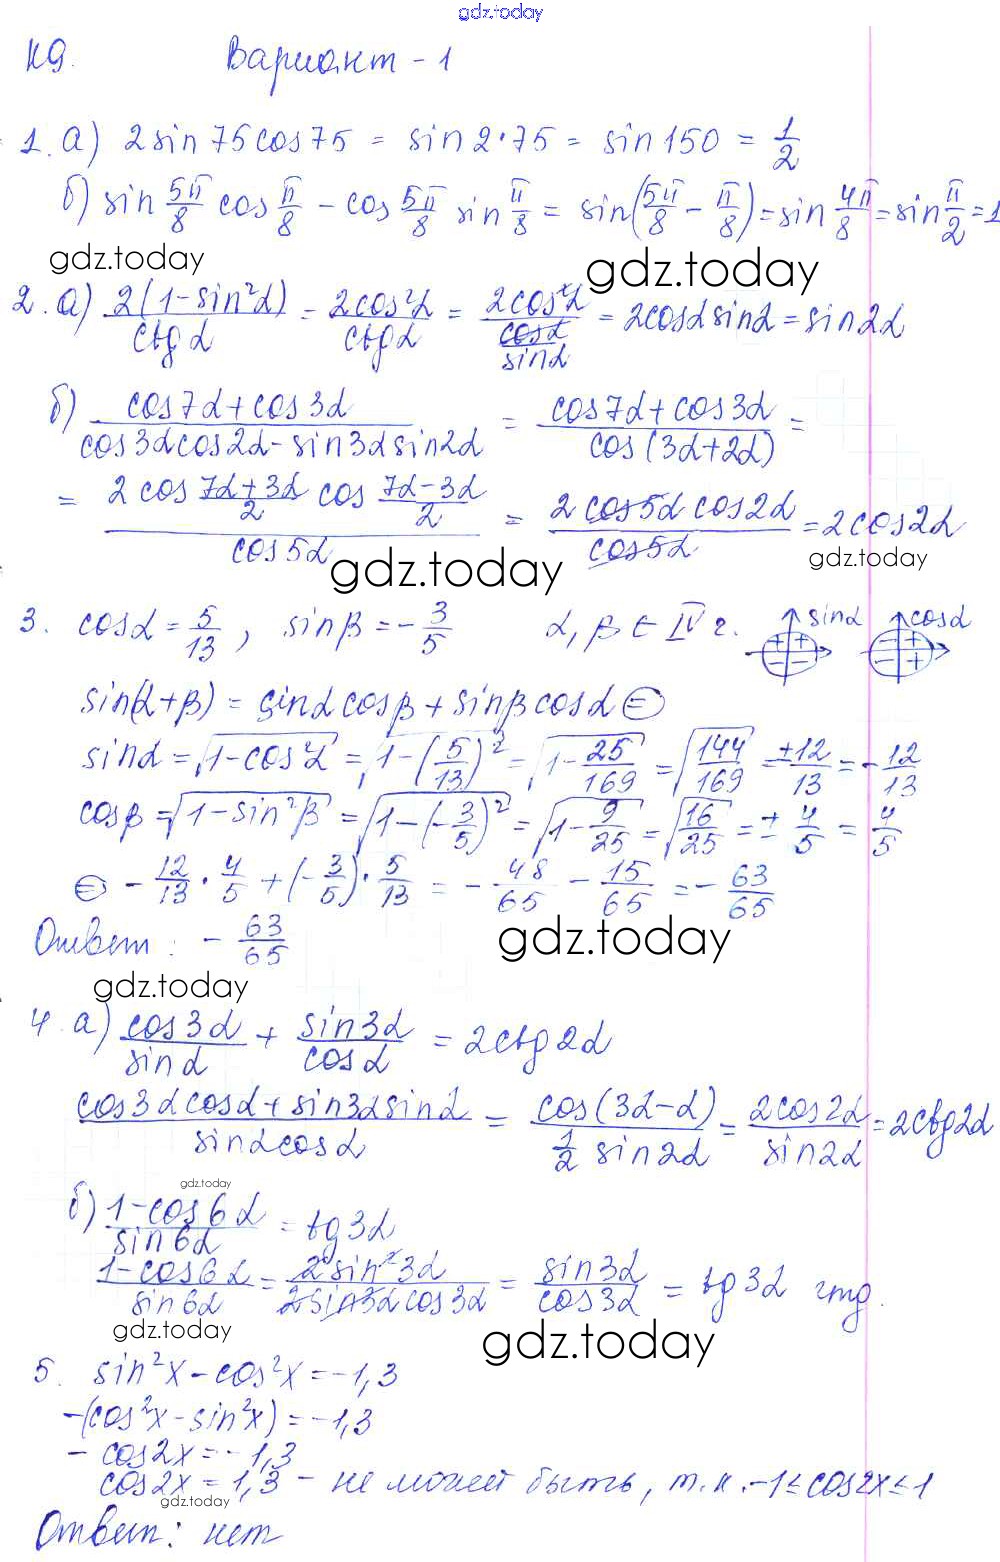 gdz.today
К9. Вариант - 1
1. а) 2sin75cos75 = sin2·75 = sin150 = 1/2
б) sin 5π/8 cos π/8 - cos 5π/8 sin π/8 = sin(5π/8 - π/8) = sin 4π/8 = sin π/2 = 1
gdz.today gdz.today
2. а) 2(1-sin²α)/ctgα = 2cos²α/ctgα = 2cos²α/(cosα/sinα) = 2cosαsinα = sin2α
б) (cos7α+cos3α)/(cos3αcos2α-sin3αsin2α) = (cos7α+cos3α)/cos(3α+2α) =
= (2cos (7α+3α)/2 cos (7α-3α)/2)/cos5α = (2cos5αcos2α)/cos5α = 2cos2α
gdz.today gdz.today
3. cosα = 5/13, sinβ = -3/5 α, β ∈ IV г. sinα cosα
sin(α+β) = sinαcosβ + sinβcosα =
sinα = √(1-cos²α) = √(1-(5/13)²) = √(1-25/169) = √(144/169) = ±12/13 = -12/13
cosβ = √(1-sin²β) = √(1-(-3/5)²) = √(1-9/25) = √(16/25) = ±4/5 = 4/5
= -12/13 · 4/5 + (-3/5) · 5/13 = -48/65 - 15/65 = -63/65
Ответ: -63/65
gdz.today gdz.today
4. а) cos3α/sinα + sin3α/cosα = 2ctg2α
(cos3αcosα+sin3αsinα)/(sinαcosα) = cos(3α-α)/(1/2 sin2α) = 2cos2α/sin2α = 2ctg2α
gdz.today
б) (1-cos6α)/sin6α = tg3α
(1-cos6α)/sin6α = 2sin²3α/(2sin3αcos3α) = sin3α/cos3α = tg3α чтд.
gdz.today gdz.today
5. sin²x - cos²x = -1,3
-(cos²x - sin²x) = -1,3
- cos2x = -1,3
cos2x = 1,3 - не может быть, т.к. -1≤cos2x≤1
gdz.today
Ответ: нет